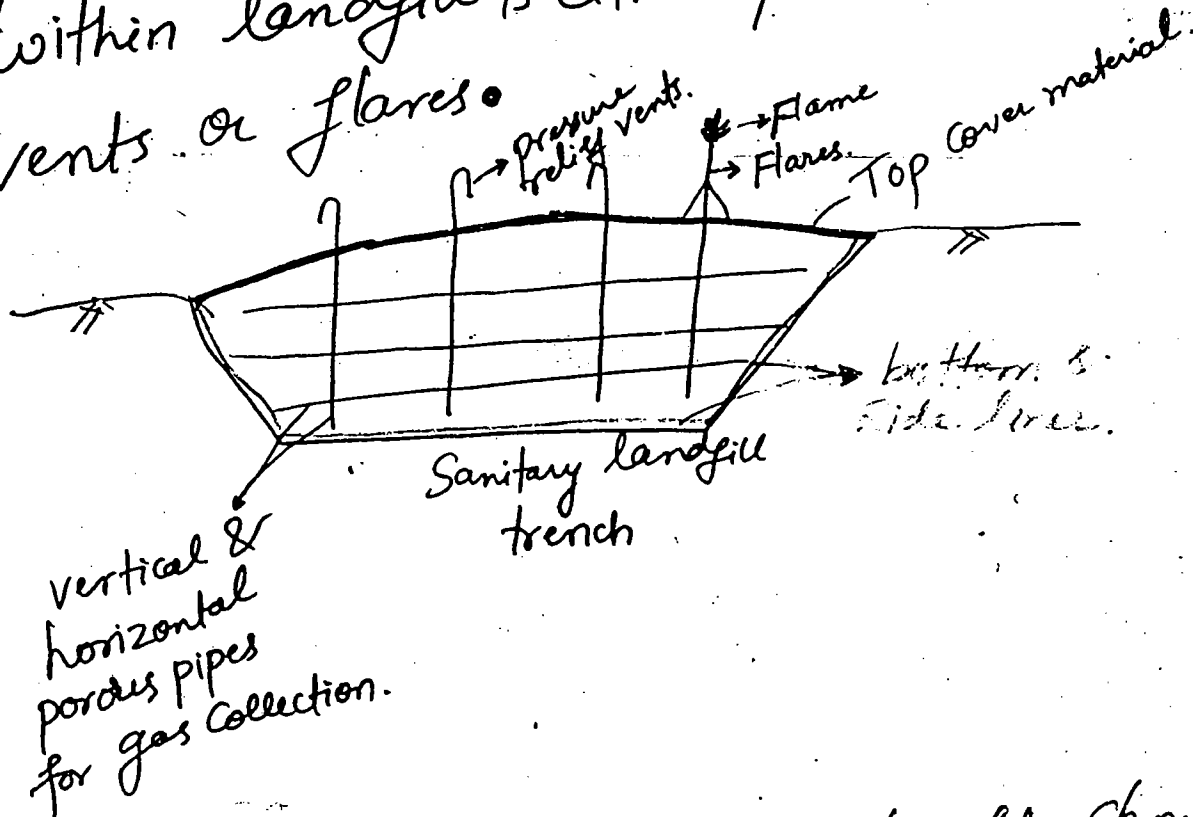 within
vents or flares.
pressure
relief vents.
→Flame
→ Flares.
Top cover material.
bottom &
side liner.
Sanitary landfill
trench
vertical &
horizontal
porous pipes
for gas collection.